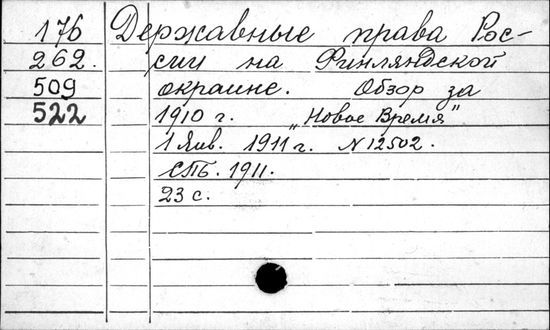 176 Державные права Рос-
262. сии на Финляндской
509 окраине. Обзор за
522 1910 г. „Новое Время"
1 Янв. 1911 г. N 12502.
СПб. 1911.
23 с.